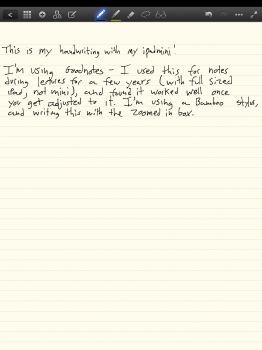 This is my handwriting with my ipadmini!
I'm using Goodnotes - I used this for notes
during lectures for a few years (with full sized
ipad, not mini), and found it worked well once
you get adjusted to it. I'm using a Bamboo stylus,
and writing this with the zoomed in box.